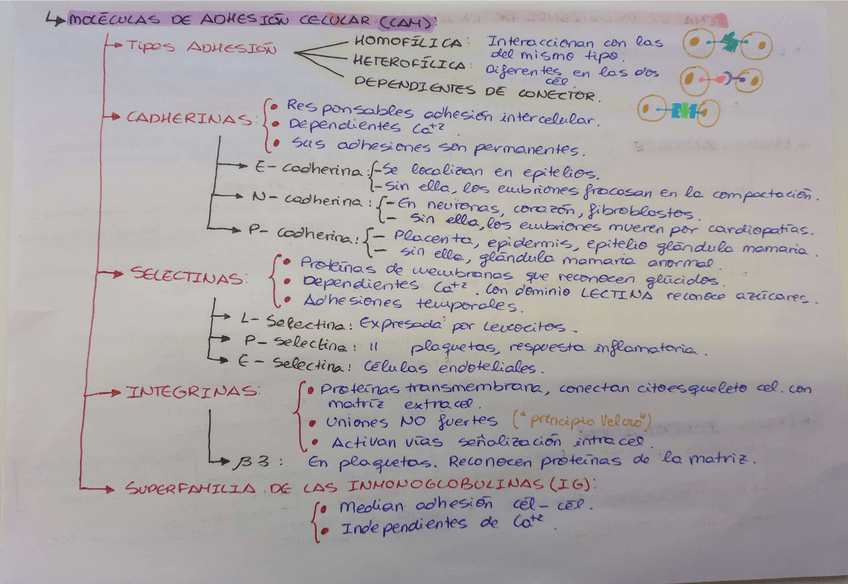 ↳ MOLÉCULAS DE ADHESIÓN CELULAR (CAM):
→ TIPOS ADHESIÓN
HOMOFÍLICA: Interaccionan con las
del mismo tipo.
HETEROFÍLICA: Diferentes en las dos
cél.
DEPENDIENTES DE CONECTOR.
→ CADHERINAS:
• Responsables adhesión intercelular.
• Dependientes Ca+2.
• Sus adhesiones son permanentes.
→ E-cadherina: - Se localizan en epitelios.
- Sin ella, los embriones fracasan en la compactación.
→ N-cadherina: - En neuronas, corazón, fibroblastos.
- Sin ella, los embriones mueren por cardiopatías.
→ P-cadherina: - Placenta, epidermis, epitelio glándula mamaria.
- sin ella, glándula mamaria anormal.
→ SELECTINAS:
• Proteínas de membranas que reconocen glúcidos.
• Dependientes Ca+2. Con dominio LECTINA reconoce azúcares.
• Adhesiones temporales.
→ L-Selectina: Expresada por leucocitos.
→ P-selectina: 11 plaquetas, respuesta inflamatoria.
→ E-selectina: Células endoteliales.
→ INTEGRINAS:
• Proteínas transmembrana, conectan citoesqueleto cel. con
matriz extracel.
• Uniones NO fuertes ("principio Velcro")
• Activan vías señalización intracel.
→ β3: En plaquetas. Reconocen proteínas de la matriz.
→ SUPERFAMILIA DE LAS INMONOGLOBULINAS (IG):
• Median adhesión cél-cél.
• Independientes de Ca+2.